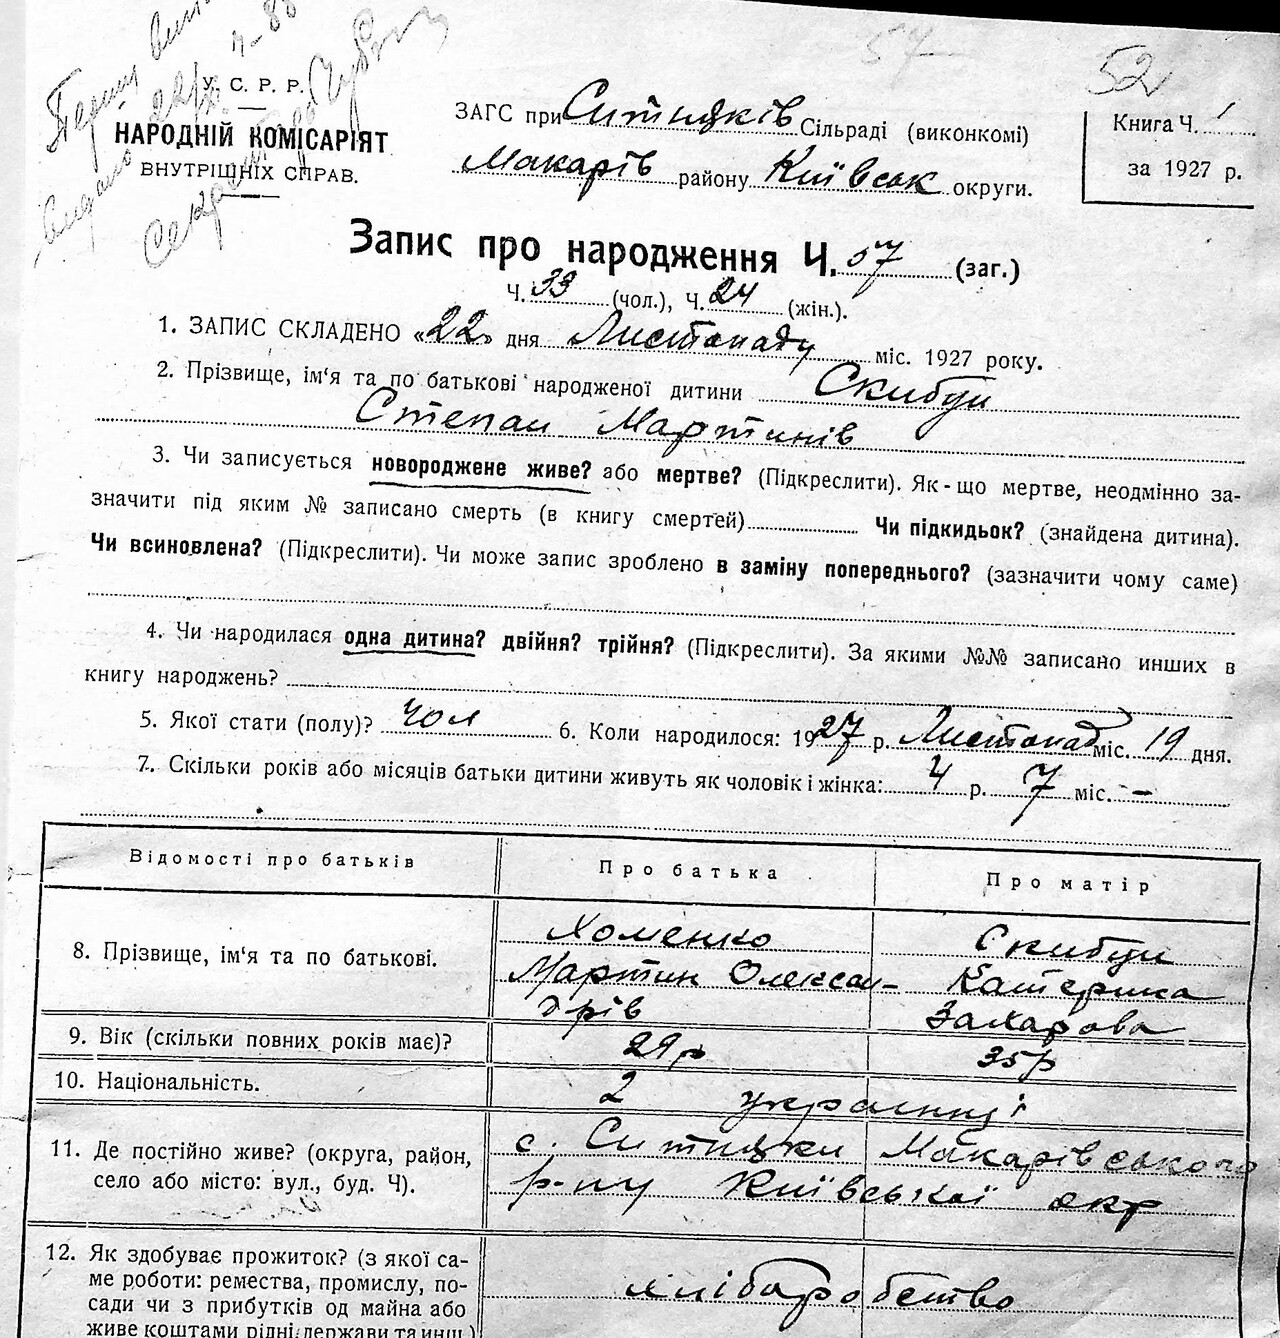 57
52
У. С. Р. Р.
НАРОДНІЙ КОМІСАРІЯТ
ВНУТРІШНІХ СПРАВ.
ЗАГС при Ситняків Сільраді (виконкомі)
Макарів району Київськ округи.
Книга Ч. 1
за 1927 р.
Запис про народження Ч. 57 (заг.)
Ч. 33 (чол.), Ч. 24 (жін.).
1. ЗАПИС СКЛАДЕНО «22» дня Листопаду міс. 1927 року.
2. Прізвище, ім'я та по батькові народженої дитини
Степан Мартинів
3. Чи записується новороджене живе? або мертве? (Підкреслити). Як-що мертве, неодмінно за-
значити під яким № записано смерть (в книгу смертей) Чи підкидьок? (знайдена дитина).
Чи всиновлена? (Підкреслити). Чи може запис зроблено в заміну попереднього? (зазначити чому саме)
4. Чи народилася одна дитина? двійня? трійня? (Підкреслити). За якими №№ записано инших в
книгу народжень?
5. Якої стати (полу)? чол 6. Коли народилося: 1927 р. Листопад міс. 19 дня.
7. Скільки років або місяців батьки дитини живуть як чоловік і жінка: 4 р. 7 міс. —
Відомості про батьків Про батька Про матір
8. Прізвище, ім'я та по батькові.
Хоменко
Мартин Олексан-
дрів
Катерина
Захарова
9. Вік (скільки повних років має)? 29 р 35 р
10. Національність. 2 українці
11. Де постійно живе? (округа, район,
село або місто: вул., буд. Ч).
с. Ситняки Макарівського
р-ну Київської окр
12. Як здобуває прожиток? (з якої са-
ме роботи: ремества, промислу, по-
сади чи з прибутків од майна або
живе коштами рідні, держави та инш.)
хліборобство